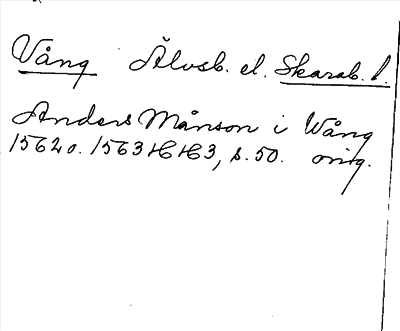 Vång Älvsb. el. Skarab. l.
Anders Månson i Wång
1562 o. 1563 HH3, s. 50. orig.